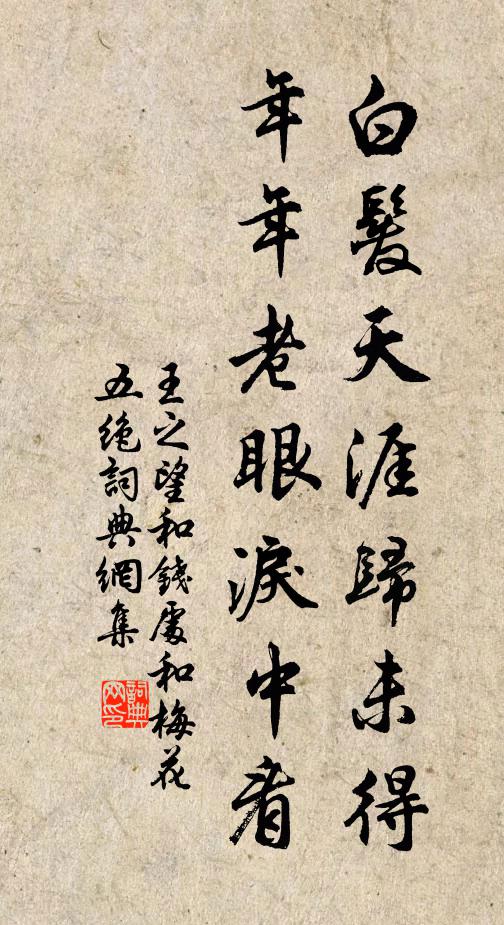 白髮天涯歸未得
年年老眼淚中看
王之望和錢處和梅花
五絕詞典網集
詞典
网印